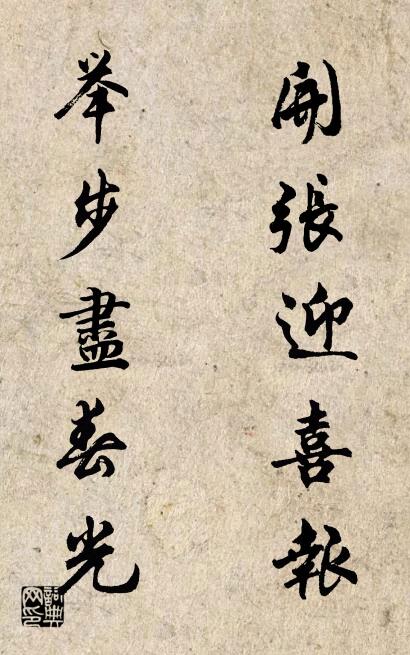 開張迎喜報
举步盡春光